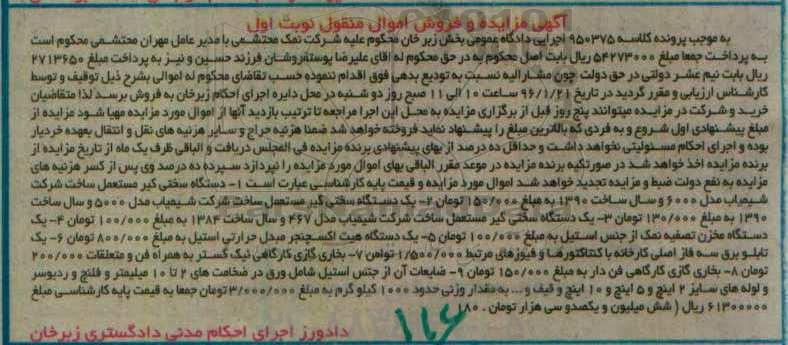 آگهی مزایده و فروش اموال منقول نوبت اول
به موجب پرونده کلاسه 950375 اجرایی دادگاه عمومی بخش زبر خان محکوم علیه شرکت نمک محتشمی با مدیر عامل مهران محتشمی محکوم است
به پرداخت جمعا مبلغ 54273000 ریال بابت اصل محکوم به در حق محکوم له آقای علیرضا پوستفروشان فرزند حسین و نیز به پرداخت مبلغ 2713650
ریال بابت نیم عشر دولتی در حق دولت چون مشارالیه نسبت به تودیع بدهی فوق اقدام ننموده حسب تقاضای محکوم له اموالی بشرح ذیل توقیف و توسط
کارشناس ارزیابی و مقرر گردید در تاریخ 96/1/21 ساعت 10 الی 11 صبح روز دو شنبه در محل دایره اجرای احکام زبرخان به فروش برسد لذا متقاضیان
خرید و شرکت در مزایده میتوانند پنج روز قبل از برگزاری مزایده به محل این اجرا مراجعه تا ترتیب بازدید آنها از اموال مورد مزایده مهیا شود مزایده از
مبلغ پیشنهادی اول شروع و به فردی که بالاترین مبلغ را پیشنهاد نماید فروخته خواهد شد ضمنا هزینه حراج و سایر هزینه های نقل و انتقال بعهده خریدار
بوده و اجرای احکام مسئولیتی نخواهد داشت و حداقل ده درصد از بهای پیشنهادی برنده مزایده فی المجلس دریافت و الباقی ظرف یک ماه از تاریخ مزایده از
برنده مزایده اخذ خواهد شد در صورتیکه برنده مزایده در موعد مقرر الباقی بهای اموال مورد مزایده را نپردازد سپرده ده درصد وی پس از کسر هزینه های
مزایده به نفع دولت ضبط و مزایده تجدید خواهد شد اموال مورد مزایده و قیمت پایه کارشناسی عبارت است 1- دستگاه سختی گیر مستعمل ساخت شرکت
شیمیاب مدل 6000 و سال ساخت 1390 به مبلغ 150/000 تومان 2- یک دستگاه سختی گیر مستعمل ساخت شرکت شیمیاب مدل 5000 و سال ساخت
1390 به مبلغ 130/000 تومان 3- یک دستگاه سختی گیر مستعمل ساخت شرکت شیمیاب مدل 467 و سال ساخت 1384 به مبلغ 100/000 تومان 4- یک
دستگاه مخزن تصفیه نمک از جنس استیل به مبلغ 100/000 تومان 5- یک دستگاه هیت اکسچنجر مبدل حرارتی استیل به مبلغ 800/000 تومان 6- یک
تابلو برق سه فاز اصلی کارخانه با کنتاکتورها و فیوزهای مرتبط 1/500/000 توامن 7- بخاری گازی کارگاهی نیک گستر به همراه فن و متعلقات 200/000
تومان 8- بخاری گازی کارگاهی فن دار به مبلغ 150/000 تومان 9- ضایعات آن از جنس استیل شامل ورق در ضخامت های 2 تا 10 میلیمتر و فلنج و ردیوسر
و لوله های سایز 2 اینچ و 5 اینچ و 10 اینچ و قیف و ... به مقدار وزنی حدود 1000 کیلو گرم به مبلغ 3/000/000 تومان جمعا به قیمت پایه کارشناسی مبلغ
61300000 ریال ( شش میلیون و یکصدو سی هزار تومان . 180
116
دادورز اجرای احکام مدنی دادگستری زبرخان